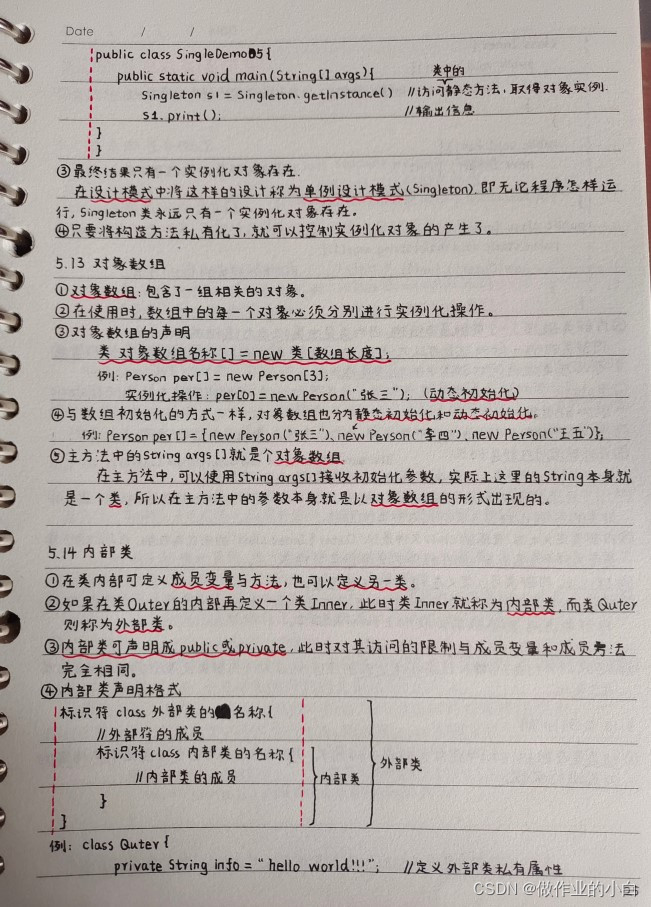 Date / /
public class SingleDemo05{
public static void main(String[] args){ 类中的
Singleton s1 = Singleton.getInstance() //访问静态方法,取得对象实例.
s1.print(); //输出信息
}
}
③最终结果只有一个实例化对象存在.
在设计模式中将这样的设计称为单例设计模式(Singleton).即无论程序怎样运
行,Singleton类永远只有一个实例化对象存在。
④只要将构造方法私有化了,就可以控制实例化对象的产生了。
5.13 对象数组
①对象数组:包含了一组相关的对象。
②在使用时,数组中的每一个对象必须分别进行实例化操作。
③对象数组的声明
类 对象数组名称[]=new 类[数组长度];
例: Person per[]=new Person[3];
实例化操作: per[0]=new Person("张三"); (动态初始化)
④与数组初始化的方式一样,对象数组也分为静态初始化和动态初始化。
例: Person per[]={new Person("张三")、new Person("李四"), new Person("王五")};
⑤主方法中的String args[]就是个对象数组
在主方法中,可以使用String args[]接收初始化参数,实际上这里的String本身就
是一个类,所以在主方法中的参数本身就是以对象数组的形式出现的。
5.14 内部类
①在类内部可定义成员变量与方法,也可以定义另一类。
②如果在类Outer的内部再定义一个类Inner,此时类Inner就称为内部类,而类Outer
则称为外部类。
③内部类可声明成public或private,此时对其访问的限制与成员变量和成员方法
完全相同。
④内部类声明格式
标识符 class 外部类的名称{
//外部符的成员
标识符 class 内部类的名称{
//内部类的成员 内部类 外部类
}
}
例: class Outer{
private String info="hello world!!!"; //定义外部类私有属性
CSDN @做作业的小白